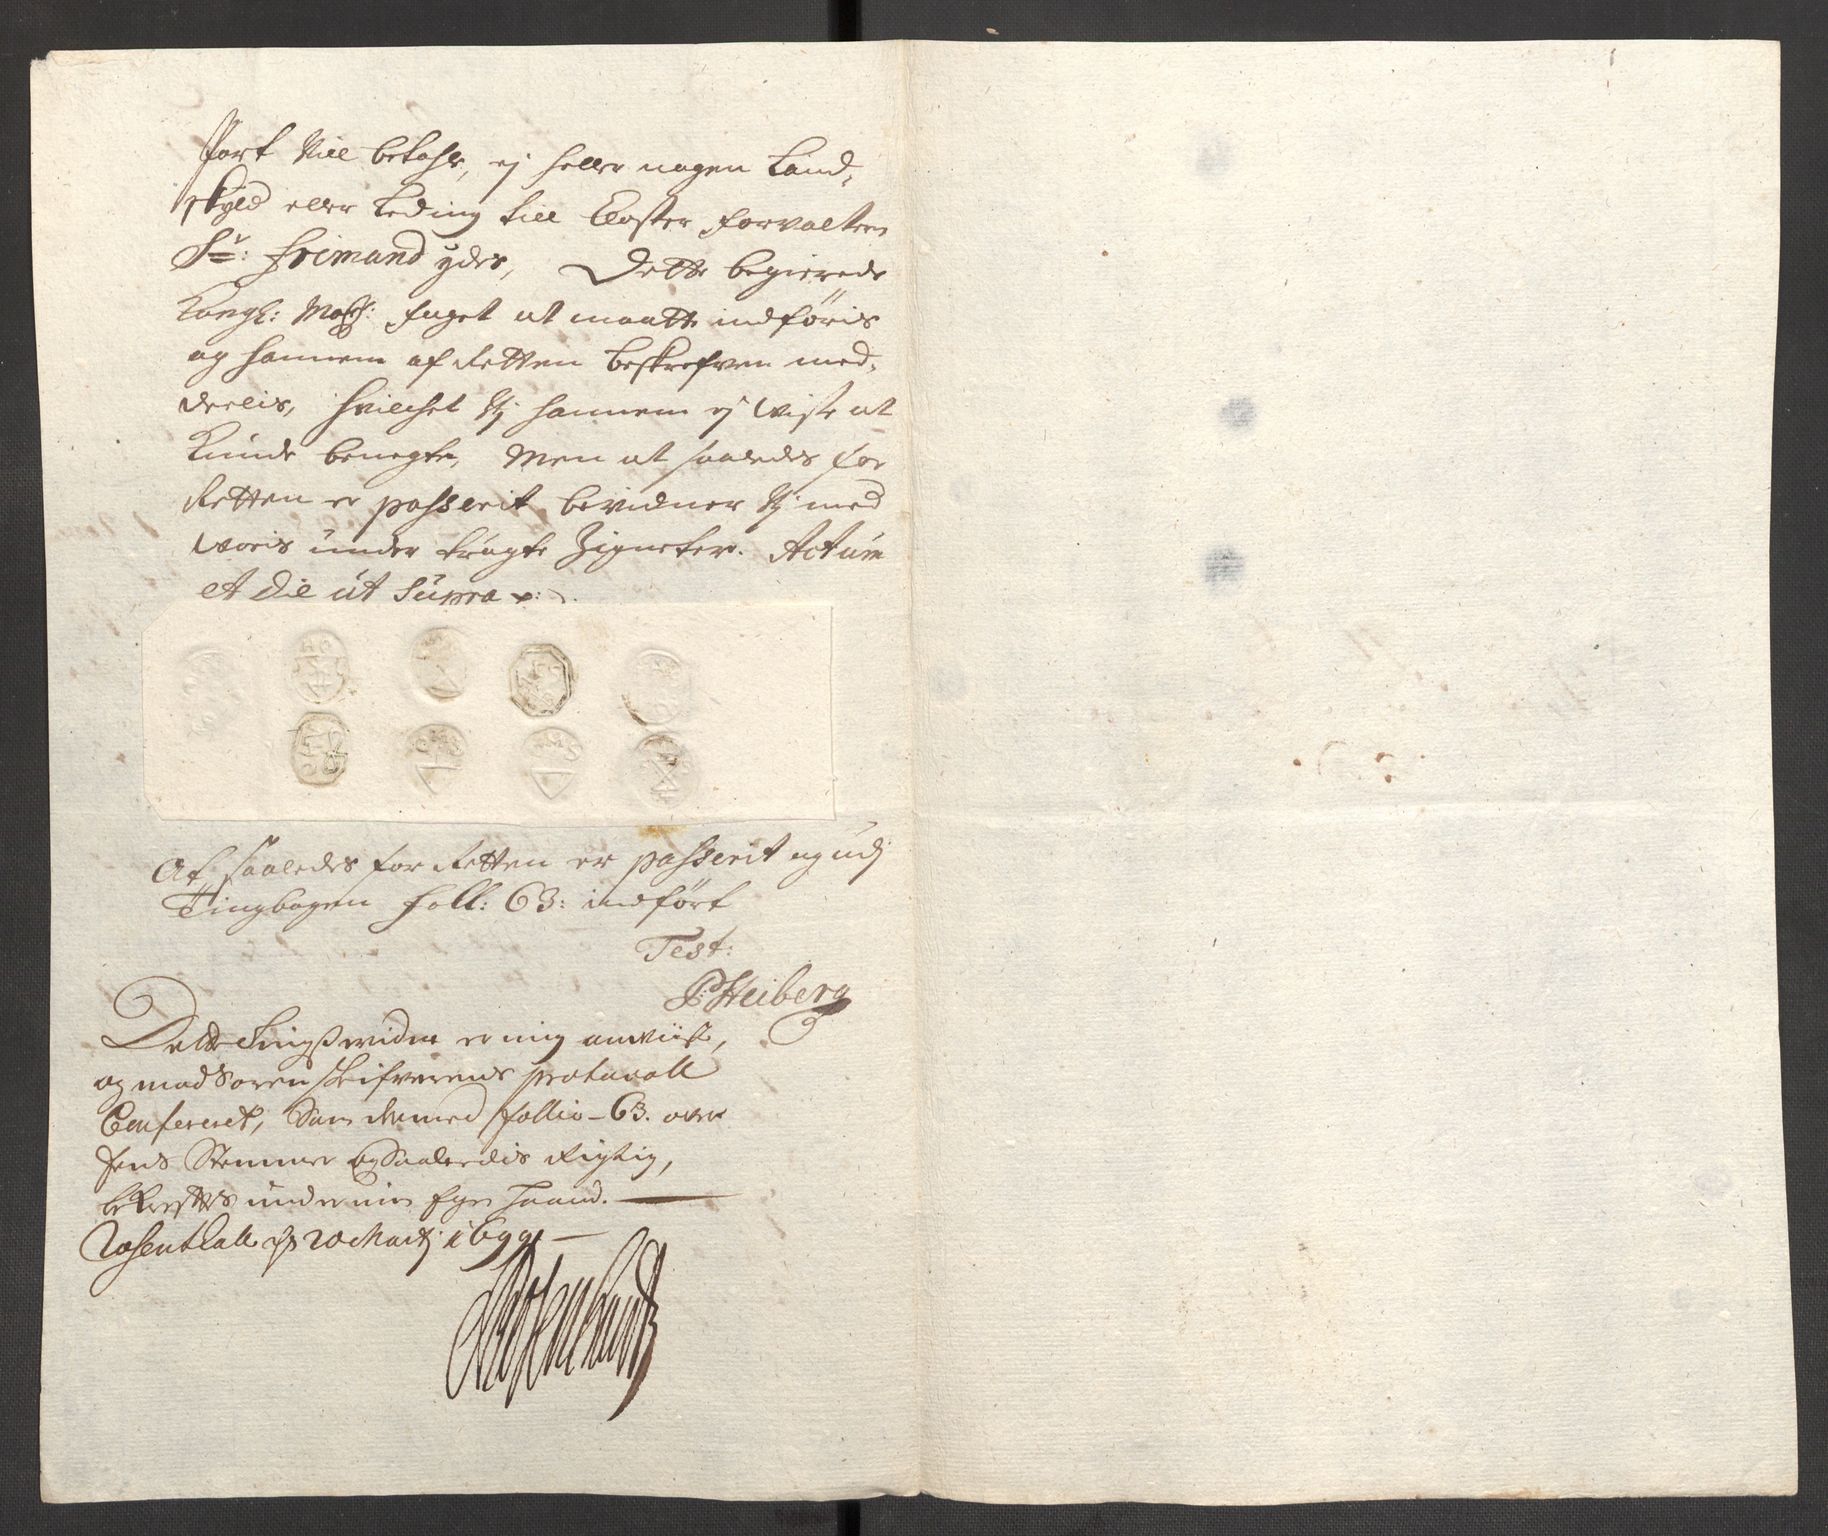 fort Vill betahle, ej heller nogen Land-
skyld eller Leding till Closter forvalteren
Sr: Frimand ydes, Dette begierede
Kongl: Maÿst: foget at maatte indføris
og hannem af Retten beskrefven med-
deelis, hvilchet Vj hannem ej viste at
Kunde benegte, Men at saaledes for
Retten er passerit bevidner Vj med
voris under trögte Zigneter. Actum
et Die ut Supra
At saaledes for Retten er passerit og udj
Tingbogen foll: 63: indført
Test:
P: Heiberg
Dette Tingsvidne er mig anviist,
og med Soren skrifverens protocoll
Confereret, Som dermed follio - 63. over
Eens Stemmer og Saaledis Rigtig,
bekreftes under min Egen Haand.
Rosendall d 20 Martj 1699 -